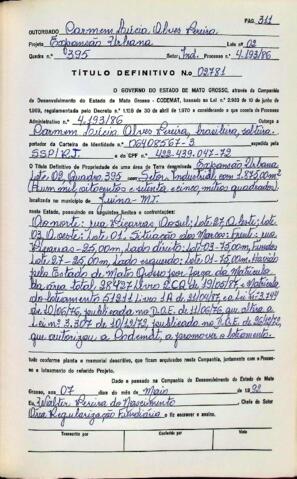 PÁG. 311
OUTORGADO Carmem Lúcia Alves Pereira
Projeto Expansão Urbana Lote nº 02
Quadra nº 395 Setor, Ind. Processo nº 4.193/86
TÍTULO DEFINITIVO No. 02781
O GOVERNO DO ESTADO DE MATO GROSSO, através da Companhia
de Desenvolvimento do Estado de Mato Grosso - CODEMAT, baseado na Lei nº 2.933 de 10 de junho de
1969, regulamentada pelo Decreto nº 1.109 de 30 de abril de 1970 e considerando o que consta do Processo
Administrativo nº 4.193/86 Outorga a
Carmem Lúcia Alves Pereira, brasileira, solteira.
portador da Carteira de Identidade nº 06408567-3 expedida pela
SSP/RJ. e do CPF nº 422.439.047-72
O Título Definitivo de Propriedade de uma área de Terra denominada Expansão Urbana
Lote 02, Quadra 395 com Setor Industrial, com 1.875,00m²
(Hum mil, oitocentos e setenta e cinco, metros quadrados)
localizada no Juína-MT.
neste Estado, possuindo os seguintes, limites e confrontações:
Ao norte: rua Piçarras, Ao sul: Lote 27, A leste: Lote
03, A oeste: Lote 01. Situação dos Marcos: Frente: rua
Piçarras - 25,00m, Lado direito: Lote 03 - 75,00m, Fundos
Lote 27 - 25,00m, Lado esquerdo: Lote 01 - 75,00m. Havido
pelo Estado de Mato Grosso por força da Matrícula
da área total 28427 Livro 2CQ de 19/05/87, e Matrícula
do loteamento 51211 Livro 1A de 21/04/87, e a Lei nº 3.149
de 10/06/76, publicada no D.O.E. de 11/06/76, que altera a
Lei nº 3.307 de 10/12/72, publicada no D.O.E. de 26/12/72,
que autorizou a Codemat, a promover o loteamento.
tudo conforme planta e memorial descritivo, que ficam arquivados nesta Companhia, juntamente com o Processo
e loteamento do referido Projeto.
Dado e passado na Companhia de Desenvolvimento do Estado de Mato
Grosso, aos 07 dias do mês de Maio de 1.992
Eu, Walter Pereira do Nascimento Chefe do Setor
Área Regularização Fundiária o fiz escrever e assino.
Transcrito por
Conferido por
Visto